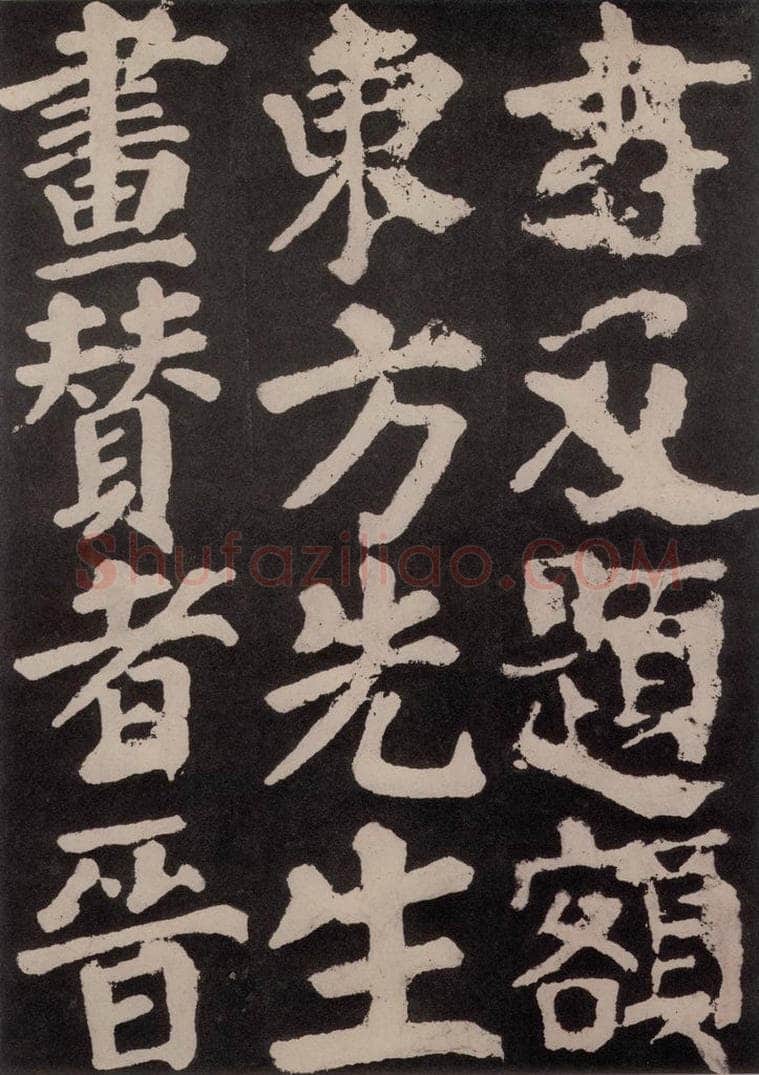 書及題額
東方先生
畫賛者晉
Shufaziliao.COM